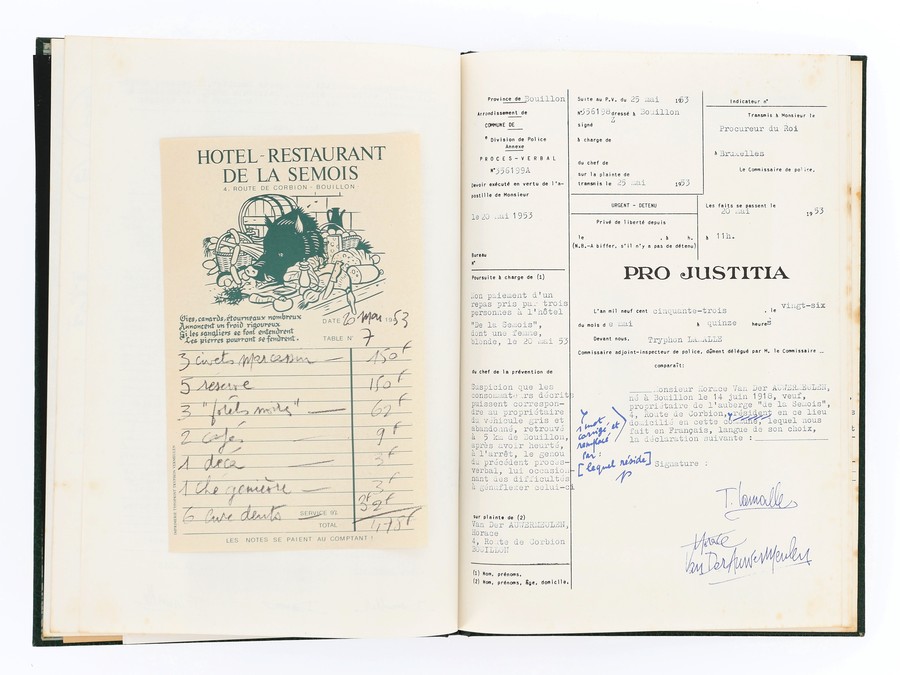 HOTEL-RESTAURANT
DE LA SEMOIS
4. ROUTE DE CORBION - BOUILLON
Oies, canards, étourneaux nombreux
Annoncent un froid rigoureux
Si les sangliers se font entendrent
Les pierres pourront se fendrent.
DATE 20 mai 1953
TABLE N° 7
3 civets marcassin — 150F
5 reserve 150F
3 "forêts noires" — 62F
2 cafés 9F
1 déca 3F
1 thé genièvre — 3F
6 cure dents
SERVICE
TOTAL
LES NOTES SE PAIENT AU COMPTANT !
Province de Bouillon
Arrondissement de
COMMUNE DE
Division de Police
Annexe
PROCES-VERBAL
N°556199A
Devoir exécuté en vertu de l'a-
postille de Monsieur
le 20 mai 1953
Bureau
n°
Poursuite à charge de (1)
Non paiement d'un
repas pris par trois
personnes à l'hôtel
"De la Semois",
dont une femme,
blonde, le 20 mai 53
du chef de la prévention de
Suspicion que les
consommateurs décrits
puissent correspon-
dre au propriétaire
du véhicule gris et
abandonné, retrouvé
à 5 km de Bouillon,
après avoir heurté,
à l'arrêt, le genou
du précédent proces-
verbal, lui occasion-
nant des difficultés
à génuflexer celui-ci
sur plainte de (2)
Van Der AUWERMEULEN,
Horace
4, Route de Corbion
BOUILLON
(1) Nom, prénoms.
(2) Nom, prénoms, âge, domicile.
Suite au P.V. du 25 mai 1953
n°556198 dressé à Bouillon
signé
à charge de
du chef de
sur la plainte de
transmis le 25 mai 1953
URGENT - DETENU
Privé de liberté depuis
le , à h.
(N.B.-A biffer, s'il n'y a pas de détenu)
Indicateur n°
Transmis à Monsieur le
Procureur du Roi
à Bruxelles
Le Commissaire de police,
Les faits se passent le
20 mai 1953
à 11h.
PRO JUSTITIA
L'an mil neuf cent cinquante-trois , le vingt-six
du mois de mai à quinze heures
Devant nous, Tryphon LAMALLE
Commissaire adjoint-inspecteur de police, dûment délégué par M. le Commissaire
comparaît:
Monsieur Horace Van Der AUWERMEULEN,
né à Bouillon le 14 juin 1918, veuf,
propriétaire de l'auberge "de la Semois",
4, Route de Corbion, résident en ce lieu
domicilié en cette commune, lequel nous
fait en Français, langue de son choix,
la déclaration suivante :
1 mot
corrigé et
remplacé
par:
[lequel réside]
Signature :
T. Lamalle
Horace
Van Der Auwermeulen